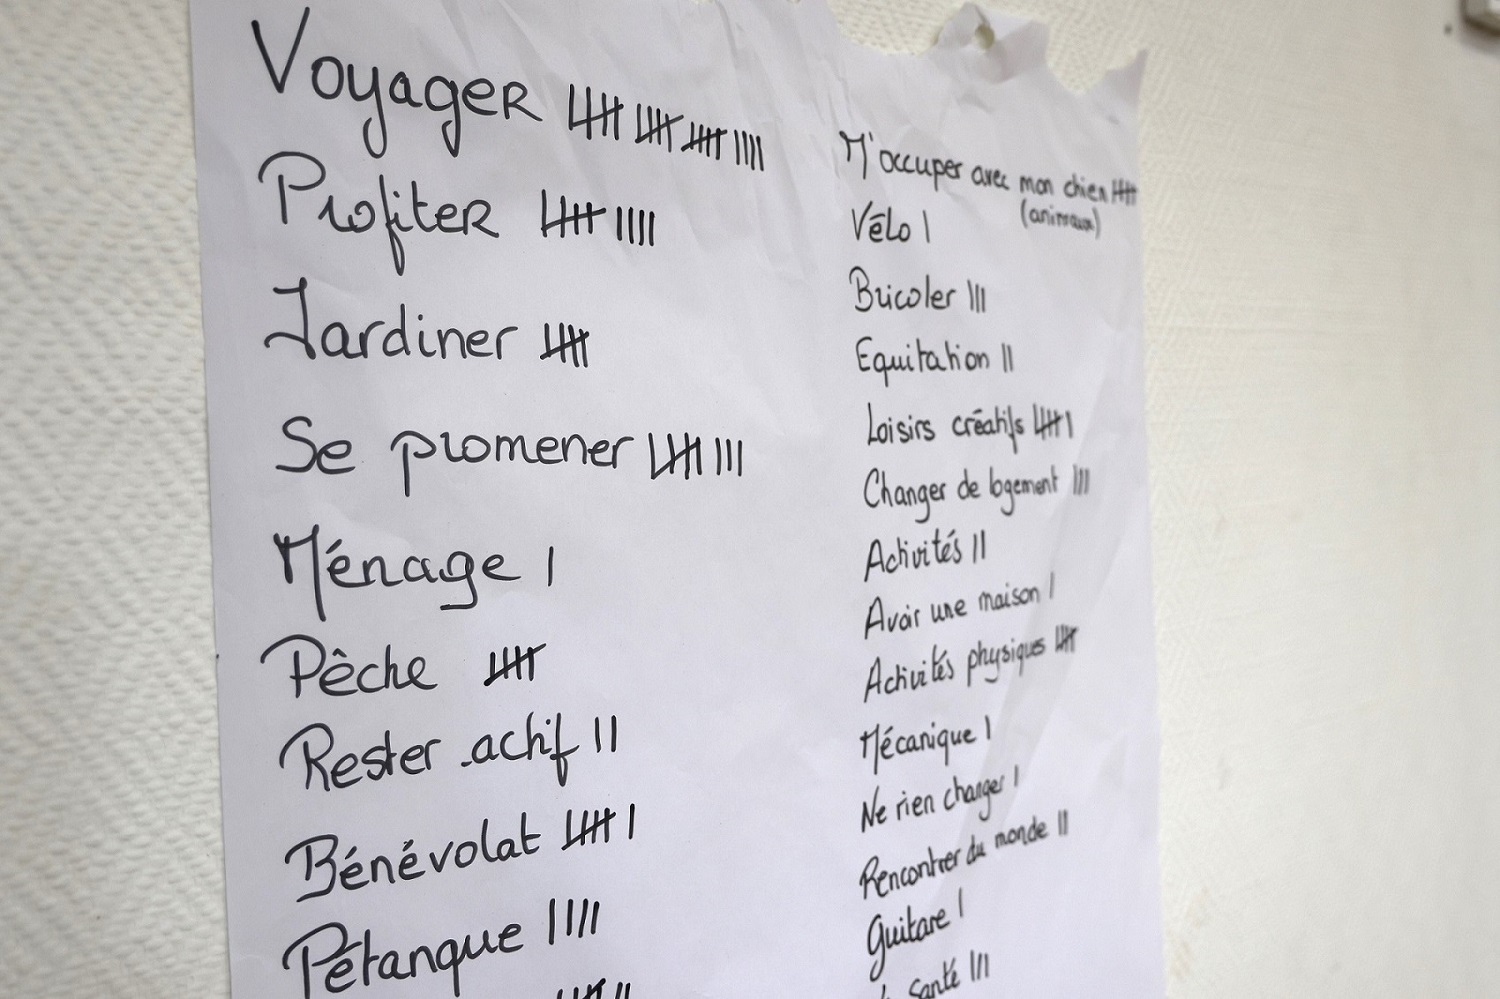 Voyager
Profiter
Jardiner
Se promener
Ménage
Pêche
Rester actif
Bénévolat
Pétanque
M'occuper avec mon chien
(animaux)
Vélo
Bricoler
Equitation
Loisirs créatifs
Changer de logement
Activités
Avoir une maison
Activités physiques
Mécanique
Ne rien changer
Rencontrer du monde
Guitare
santé